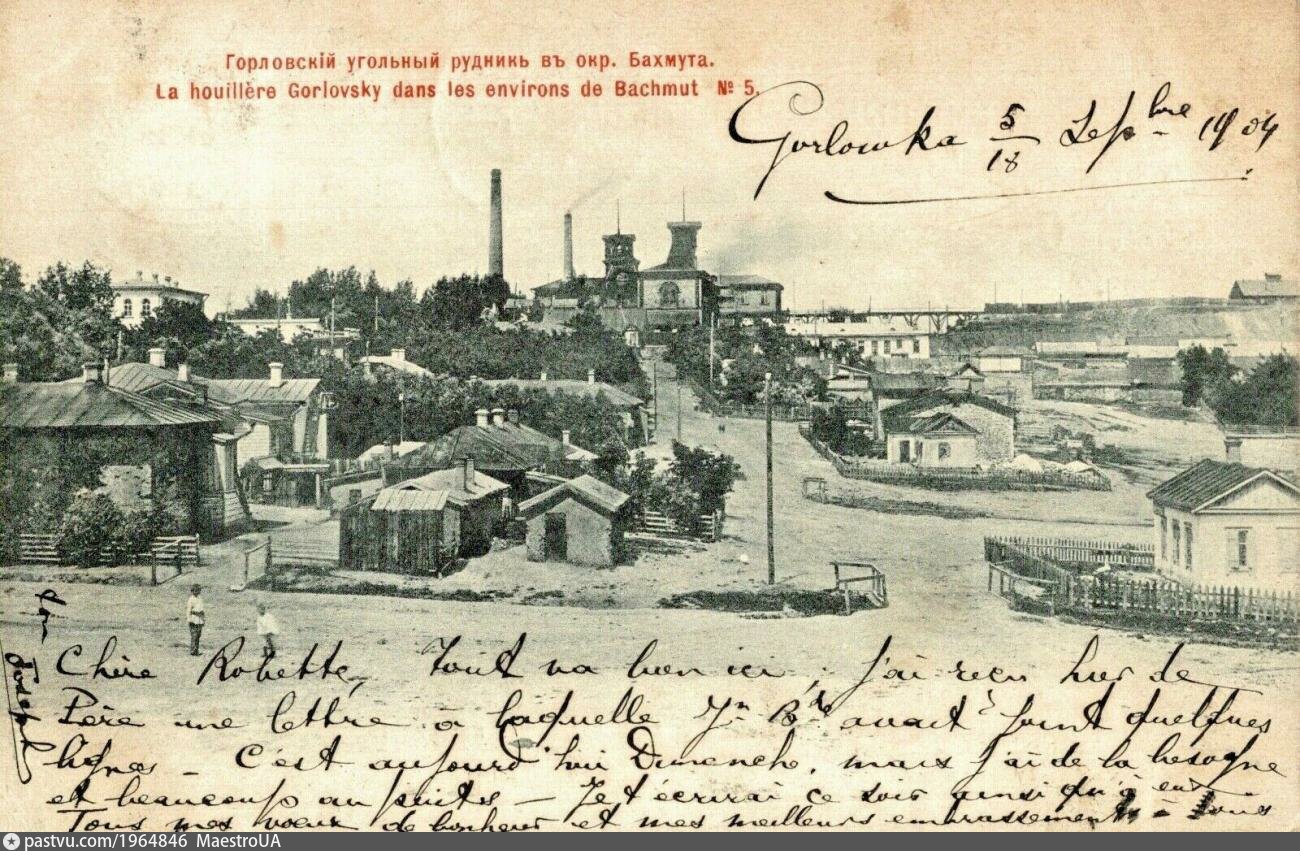 Горловскій угольный рудникъ въ окр. Бахмута.
La houillère Gorlovsky dans les environs de Bachmut № 5.
Gorlowka 5/18 Sepbre 1904
Chère Robette, Tout va bien ici; j'ai reçu hier de
Père une lettre à laquelle avait joint quelques
lignes - C'est aujourd'hui Dimanche, mais j'ai de la besogne
et beaucoup au puits - Je t'écrirai ce soir ainsi qu'à eux
Tous mes voeux de bonheur et mes meilleurs embrassements à tous
Joseph
pastvu.com/1964846 MaestroUA